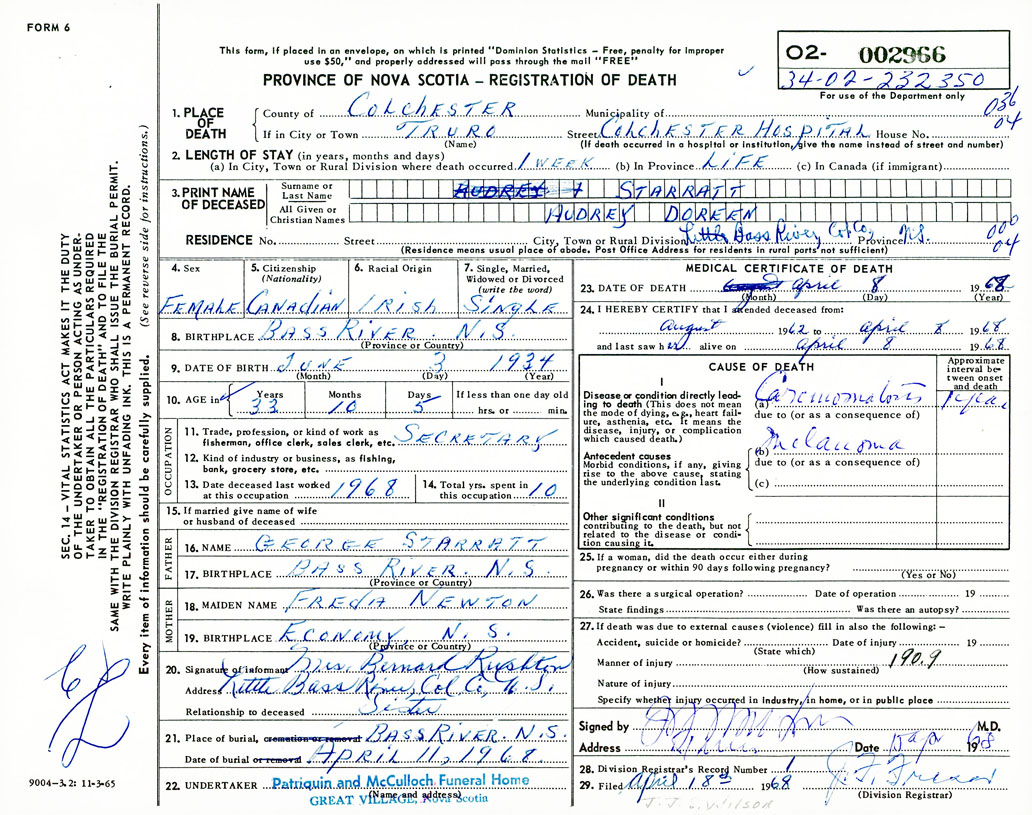 FORM 6
This form, if placed in an envelope, on which is printed "Dominion Statistics – Free, penalty for improper
use $50," and properly addressed will pass through the mail "FREE"
PROVINCE OF NOVA SCOTIA – REGISTRATION OF DEATH
02- 002966
34-02-232350
For use of the Department only
036
04
SEC. 14 – VITAL STATISTICS ACT MAKES IT THE DUTY
OF THE UNDERTAKER OR PERSON ACTING AS UNDER-
TAKER TO OBTAIN ALL THE PARTICULARS REQUIRED
IN THE "REGISTRATION OF DEATH" AND TO FILE THE
SAME WITH THE DIVISION REGISTRAR WHO SHALL ISSUE THE BURIAL PERMIT.
WRITE PLAINLY WITH UNFADING INK. THIS IS A PERMANENT RECORD.
Every item of information should be carefully supplied. (See reverse side for instructions.)
1. PLACE OF DEATH
County of COLCHESTER Municipality of
If in City or Town TRURO Street COLCHESTER HOSPITAL House No.
(Name) (If death occurred in a hospital or institution, give the name instead of street and number)
2. LENGTH OF STAY (in years, months and days)
(a) In City, Town or Rural Division where death occurred 1 WEEK (b) In Province LIFE (c) In Canada (if immigrant)
3. PRINT NAME OF DECEASED
Surname or Last Name AUDREY STARRATT
All Given or Christian Names AUDREY DOREEN
RESIDENCE No. Street City, Town or Rural Division Little Bass River, Col Co, Province N.S.
000
04
(Residence means usual place of abode. Post Office Address for residents in rural parts not sufficient)
4. Sex
FEMALE
5. Citizenship
(Nationality)
CANADIAN
6. Racial Origin
IRISH
7. Single, Married,
Widowed or Divorced
(write the word)
SINGLE
8. BIRTHPLACE BASS RIVER N.S.
(Province or Country)
9. DATE OF BIRTH JUNE 3 1934
(Month) (Day) (Year)
10. AGE in
Years Months Days If less than one day old
33 10 5 hrs. or min.
OCCUPATION
11. Trade, profession, or kind of work as
fisherman, office clerk, sales clerk, etc. SECRETARY
12. Kind of industry or business, as fishing,
bank, grocery store, etc.
13. Date deceased last worked
at this occupation 1968
14. Total yrs. spent in
this occupation 10
15. If married give name of wife
or husband of deceased
FATHER
16. NAME GEORGE STARRATT
17. BIRTHPLACE BASS RIVER. N.S.
(Province or Country)
MOTHER
18. MAIDEN NAME FREDA NEWTON
19. BIRTHPLACE ECONOMY, N.S.
(Province or Country)
20. Signature of informant Mrs. Bernard Rushton
Address Little Bass River, Col Co, N.S.
Relationship to deceased Sister
21. Place of burial, cremation or removal BASS RIVER. N.S.
Date of burial or removal APRIL 11, 1968
22. UNDERTAKER Patriquin and McCulloch Funeral Home
(Name and address)
GREAT VILLAGE, Nova Scotia
9004-3.2: 11-3-65
MEDICAL CERTIFICATE OF DEATH
23. DATE OF DEATH April 8 1968
(Month) (Day) (Year)
24. I HEREBY CERTIFY that I attended deceased from:
August 1962 to April 8 1968
and last saw her alive on April 8 1968
CAUSE OF DEATH
Approximate
interval be-
tween onset
and death
I
Disease or condition directly lead-
ing to death (This does not mean
the mode of dying, e.g., heart fail-
ure, asthenia, etc. It means the
disease, injury, or complication
which caused death.)
(a) Carcinomatosis 1 year
due to (or as a consequence of)
Antecedent causes
Morbid conditions, if any, giving
rise to the above cause, stating
the underlying condition last.
(b) Melanoma
due to (or as a consequence of)
(c)
II
Other significant conditions
contributing to the death, but not
related to the disease or condi-
tion causing it.
25. If a woman, did the death occur either during
pregnancy or within 90 days following pregnancy?
(Yes or No)
26. Was there a surgical operation? Date of operation 19
State findings Was there an autopsy?
27. If death was due to external causes (violence) fill in also the following: –
Accident, suicide or homicide? Date of injury 19
(State which)
Manner of injury 190.9
(How sustained)
Nature of injury
Specify whether injury occurred in industry, in home, or in public place
Signed by M.D.
Address Date 15 Apr 1968
28. Division Registrar's Record Number 1
29. Filed April 18th 1968
(Division Registrar)